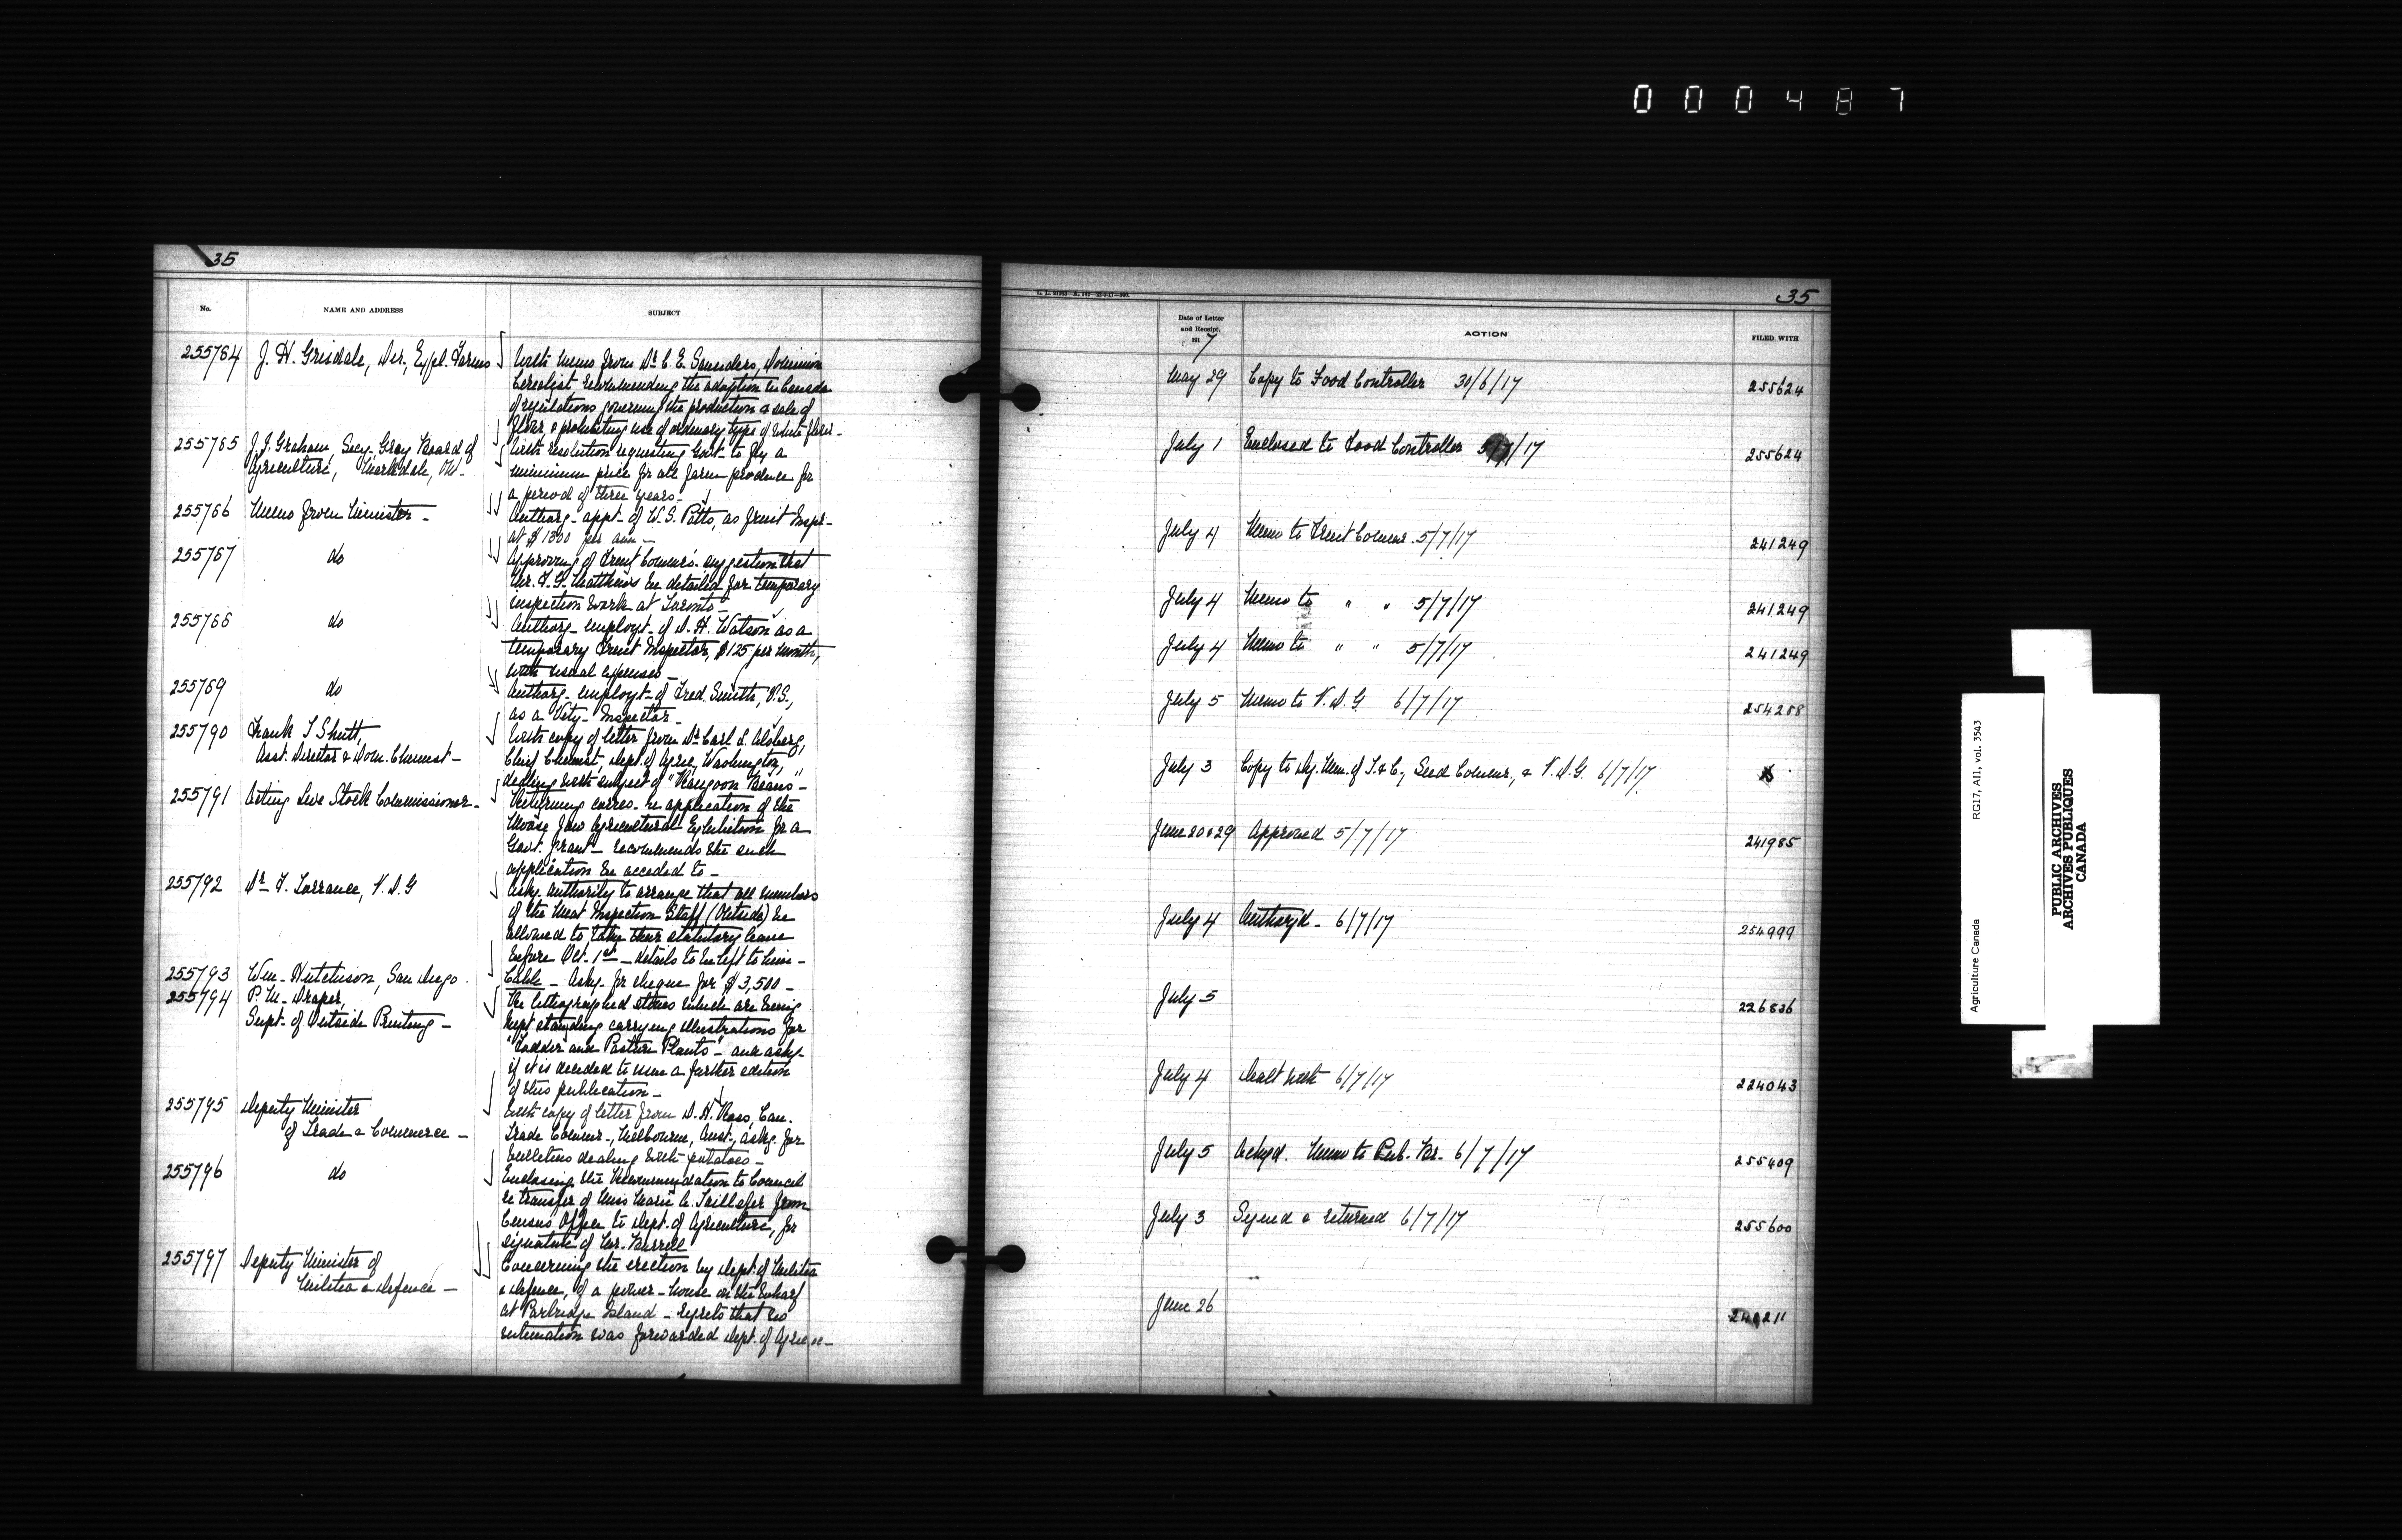 000487
35
No.
NAME AND ADDRESS
SUBJECT
255784 J. H. Grisdale, Dir., Expl. Farms
With memo from Dr. C. E. Saunders, Dominion
Cerealist recommending the adoption in Canada
of regulations governing the production & sale of
flour & prohibiting use of ordinary type of white flour -
255785 J. J. Graham, Secy., Grey Board of
Agriculture, Markdale, Ont -
With resolution requesting Govt. to fix a
minimum price for all farm produce for
a period of three years -
255786 Memo from Minister -
Authorg - appt - of W. S. Potts, as Fruit Inspr -
at $1300 per ann -
255787 do
Approving of Fruit Commr's - suggestion that
Mr. F. G. Matthews be detailed for temporary
inspection work at Toronto -
255788 do
Authorg - employt - of D. H. Watson as a
temporary Fruit Inspector, $125 per month,
with usual expenses -
255789 do
Authorg - employt - of Fred. Smith, V.S.,
as a Vety - Inspector -
255790 Frank T Shutt,
Asst. Director & Dom. Chemist -
With copy of letter from Dr. Carl L. Alsberg,
Chief Chemist, Dept. of Agric., Washington,
dealing with subject of "Rangoon Beans" -
255791 Acting Live Stock Commissioner -
Returning corres - re application of the
Moose Jaw Agricultural Exhibition for a
Govt. grant - recommends the such
application be acceded to -
255792 Dr. F. Torrance, V.D.G
Askg. authority to arrange that all members
of the Meat Inspection Staff (Outside) be
allowed to take their statutory leave
before Oct. 1st - details to be left to him -
255793 Wm - Hutchison, San Diego.
Cable - Askg. for cheque for $3,500 -
255794 P. M - Draper,
Supt - of Outside Printing -
Re lithographed stones which are being
kept standing carrying illustrations for
"Fodder and Pasture Plants" - and askg -
if it is decided to issue a further edition
of this publication -
255795 Deputy Minister
of Trade & Commerce -
With copy of letter from D. H. Ross, Can.
Trade Commr -, Melbourne, Aust., askg. for
bulletins dealing with potatoes -
255796 do
Enclosing the Recommendation to Council
re transfer of Miss Marie C. from
Census Office to Dept. of Agriculture, for
signature of Mr. Burrell
255797 Deputy Minister of
Militia & Defence -
Concerning the erection by Dept. of Militia
& Defence, of a power - house on the wharf
at Partridge Island - regrets that no
intimation was forwarded Dept. of Agric. re -
35
Date of Letter
and Receipt.
191 7
ACTION
FILED WITH
May 29 Copy to Food Controller 30/6/17 255624
July 1 Enclosed to Food Controller 5/7/17 255624
July 4 Memo to Fruit Commr. 5/7/17 241249
July 4 Memo to " " 5/7/17 241249
July 4 Memo to " " 5/7/17 241249
July 5 Memo to V.D.G 6/7/17 254288
July 3 Copy to Dy. Min. of T. & C., Seed Commr., & V.D.G. 6/7/17
June 20 & 29 Approved 5/7/17 241985
July 4 Authorzd - 6/7/17 254999
July 5 226836
July 4 Dealt with 6/7/17 224043
July 5 Ackgd. Memo to Pub. Br. 6/7/17 255409
July 3 Signed & returned 6/7/17 255600
June 26
Agriculture Canada RG17, AII, vol. 3543
PUBLIC ARCHIVES
ARCHIVES PUBLIQUES
CANADA